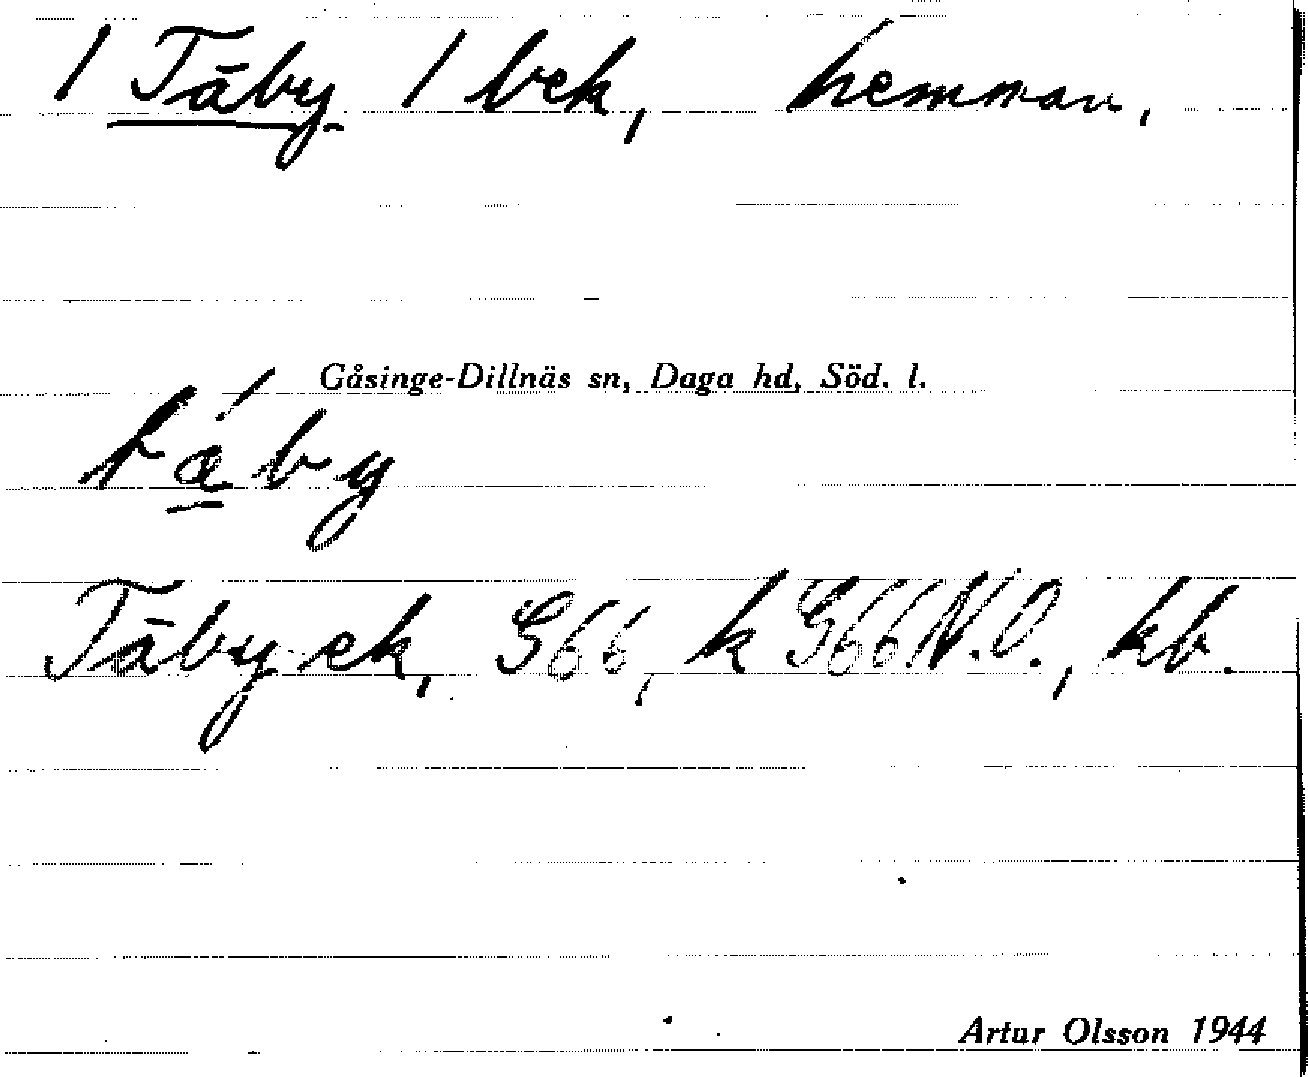 / Täby / bek, hemman,
Gåsinge-Dillnäs sn, Daga hd, Söd. l.
tǽ̲by
Täby ek, G66, k G66 N.O., kb.
Artur Olsson 1944